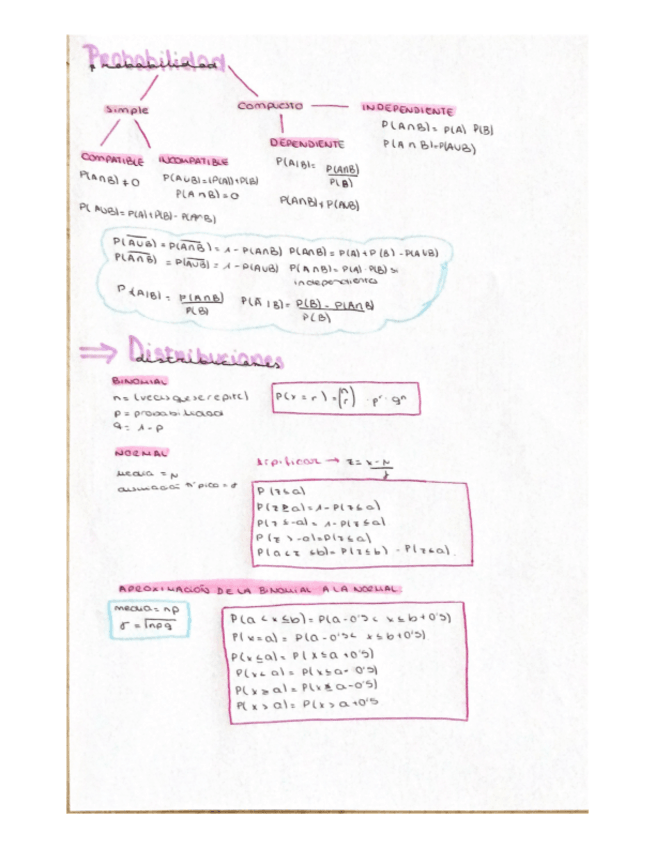 Probabilidad
Simple
Compuesto
INDEPENDIENTE
P(A∩B)= P(A) P(B)
P(A∩B)=P(AUB)
COMPATIBLE
P(A∩B) ≠ 0
P(AUB)=P(A)+P(B)-P(A∩B)
INCOMPATIBLE
P(AUB)=(P(A))+P(B)
P(A∩B)=0
DEPENDIENTE
P(A|B)= P(A∩B)
P(B)
P(A∩B) ≠ P(AUB)
P(A̅U̅B̅) = P(A̅∩B̅) = 1 - P(A∩B) P(A∩B) = P(A)+P(B) - P(AUB)
P(A̅∩B̅) = P(A̅U̅B̅) = 1 - P(AUB) P(A∩B)= P(A)·P(B) si
independiente
P(A|B) = P(A∩B) P(A̅|B)= P(B) - P(A∩B)
P(B) P(B)
⇒ Distribuciones
BINOMIAL
n= (veces que se repite)
p = probabilidad
q= 1-p
P(x=r)=(n r)·pʳ·qⁿ
NORMAL
media = N
típica = σ
tipificar → z= x-N
σ
P(z≤a)
P(z≥a)=1-P(z≤a)
P(z≤-a)= 1-P(z≤a)
P(z>-a)=P(z≤a)
P(a<z≤b)= P(z≤b) - P(z≤a).
APROXIMACIÓN DE LA BINOMIAL A LA NORMAL
media= np
σ = √npq
P(a<x≤b)=P(a-0'5< x≤b+0'5)
P(x=a)= P(a-0'5< x≤b+0'5)
P(x≤a)= P(x≤a+0'5)
P(x<a)= P(x≤a-0'5)
P(x≥a)= P(x≥a-0'5)
P(x>a)= P(x>a+0'5